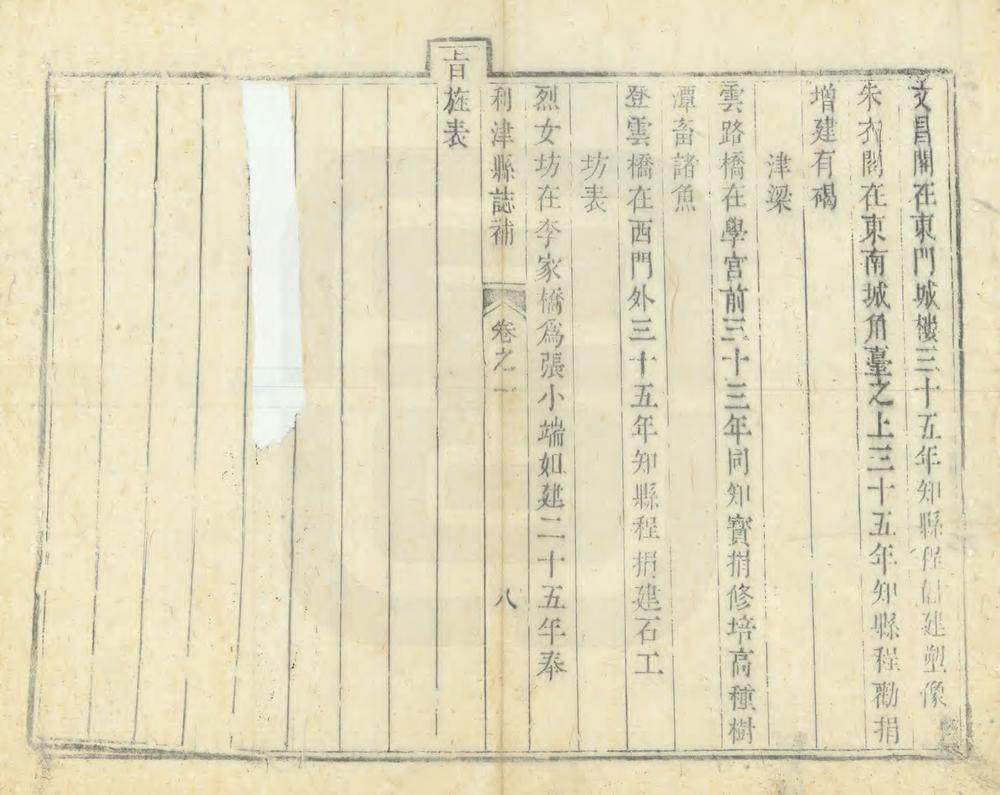 文昌閣在東門城樓三十五年知縣程倡建塑像
朱衣閣在東南城角臺之上三十五年知縣程勸捐
增建有碣
津梁
雲路橋在學宮前三十三年同知寶捐修培高種樹
潭畜諸魚
登雲橋在西門外三十五年知縣程捐建石工
坊表
烈女坊在李家橋爲張小端如建二十五年奉
利津縣誌補 卷之一 八
旨旌表